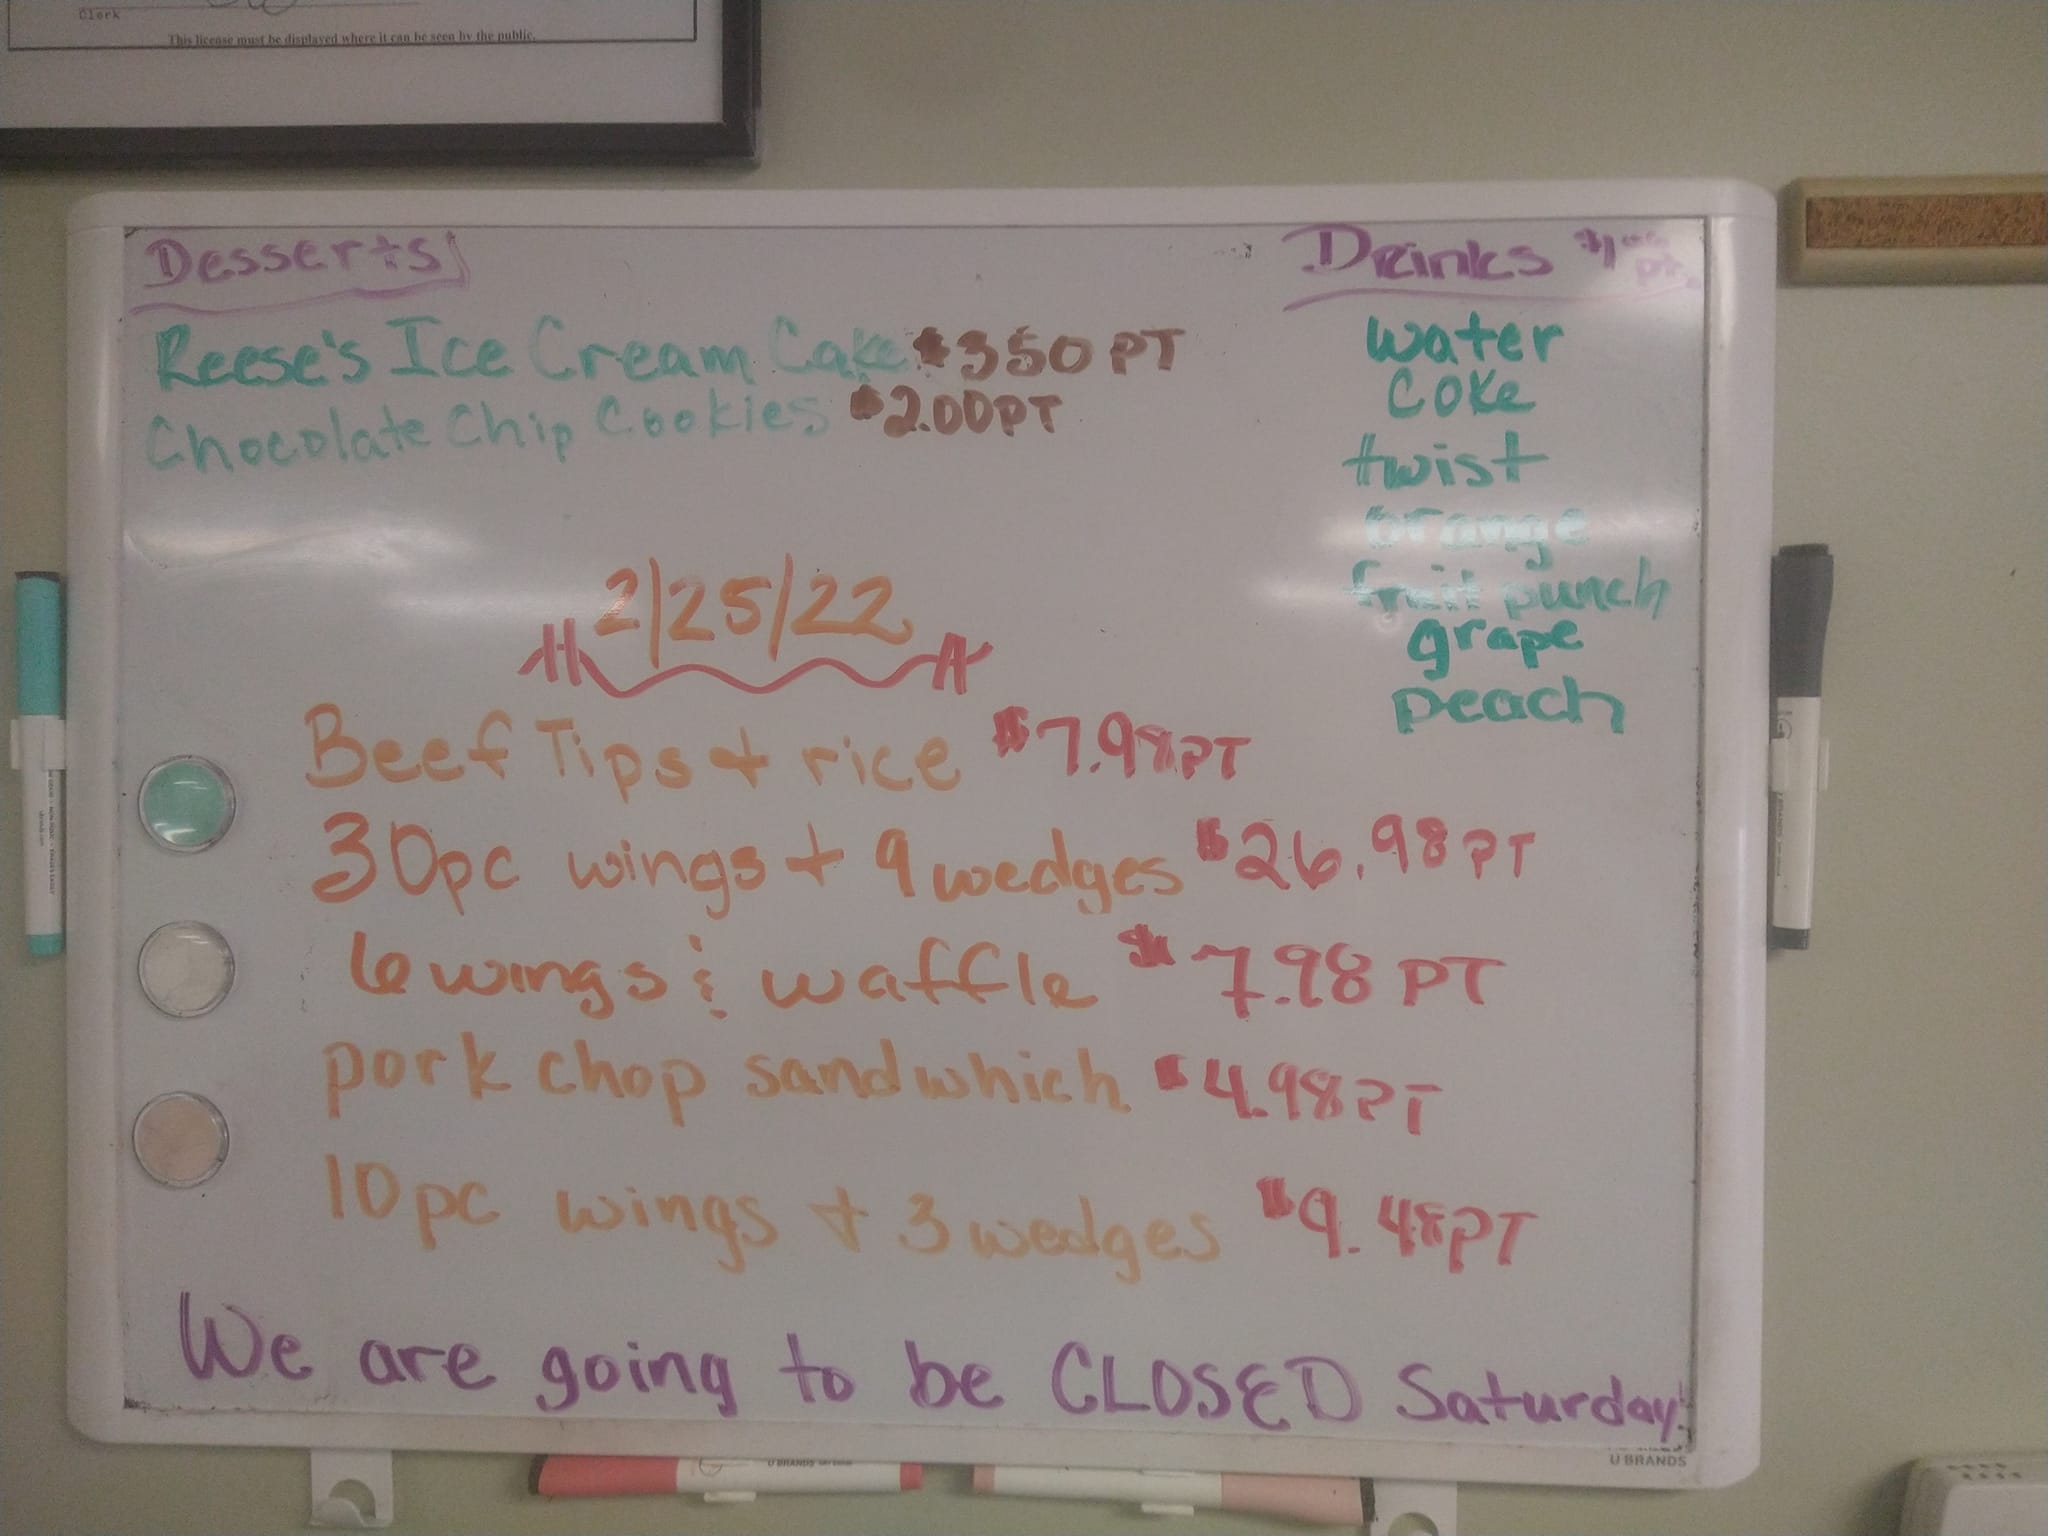 Clerk
This license must be displayed where it can be seen by the public.
Desserts
Reese's Ice Cream Cake $3.50 PT
Chocolate Chip Cookies $2.00 PT
Drinks $1.00 pt.
water
Coke
twist
orange
fruit punch
grape
peach
2/25/22
Beef Tips + rice $7.98 PT
30pc wings + 9 wedges $26.98 PT
6 wings & waffle $7.98 PT
pork chop sandwhich $4.98 PT
10pc wings + 3 wedges $9.48 PT
We are going to be CLOSED Saturday!
U BRANDS
U BRANDS